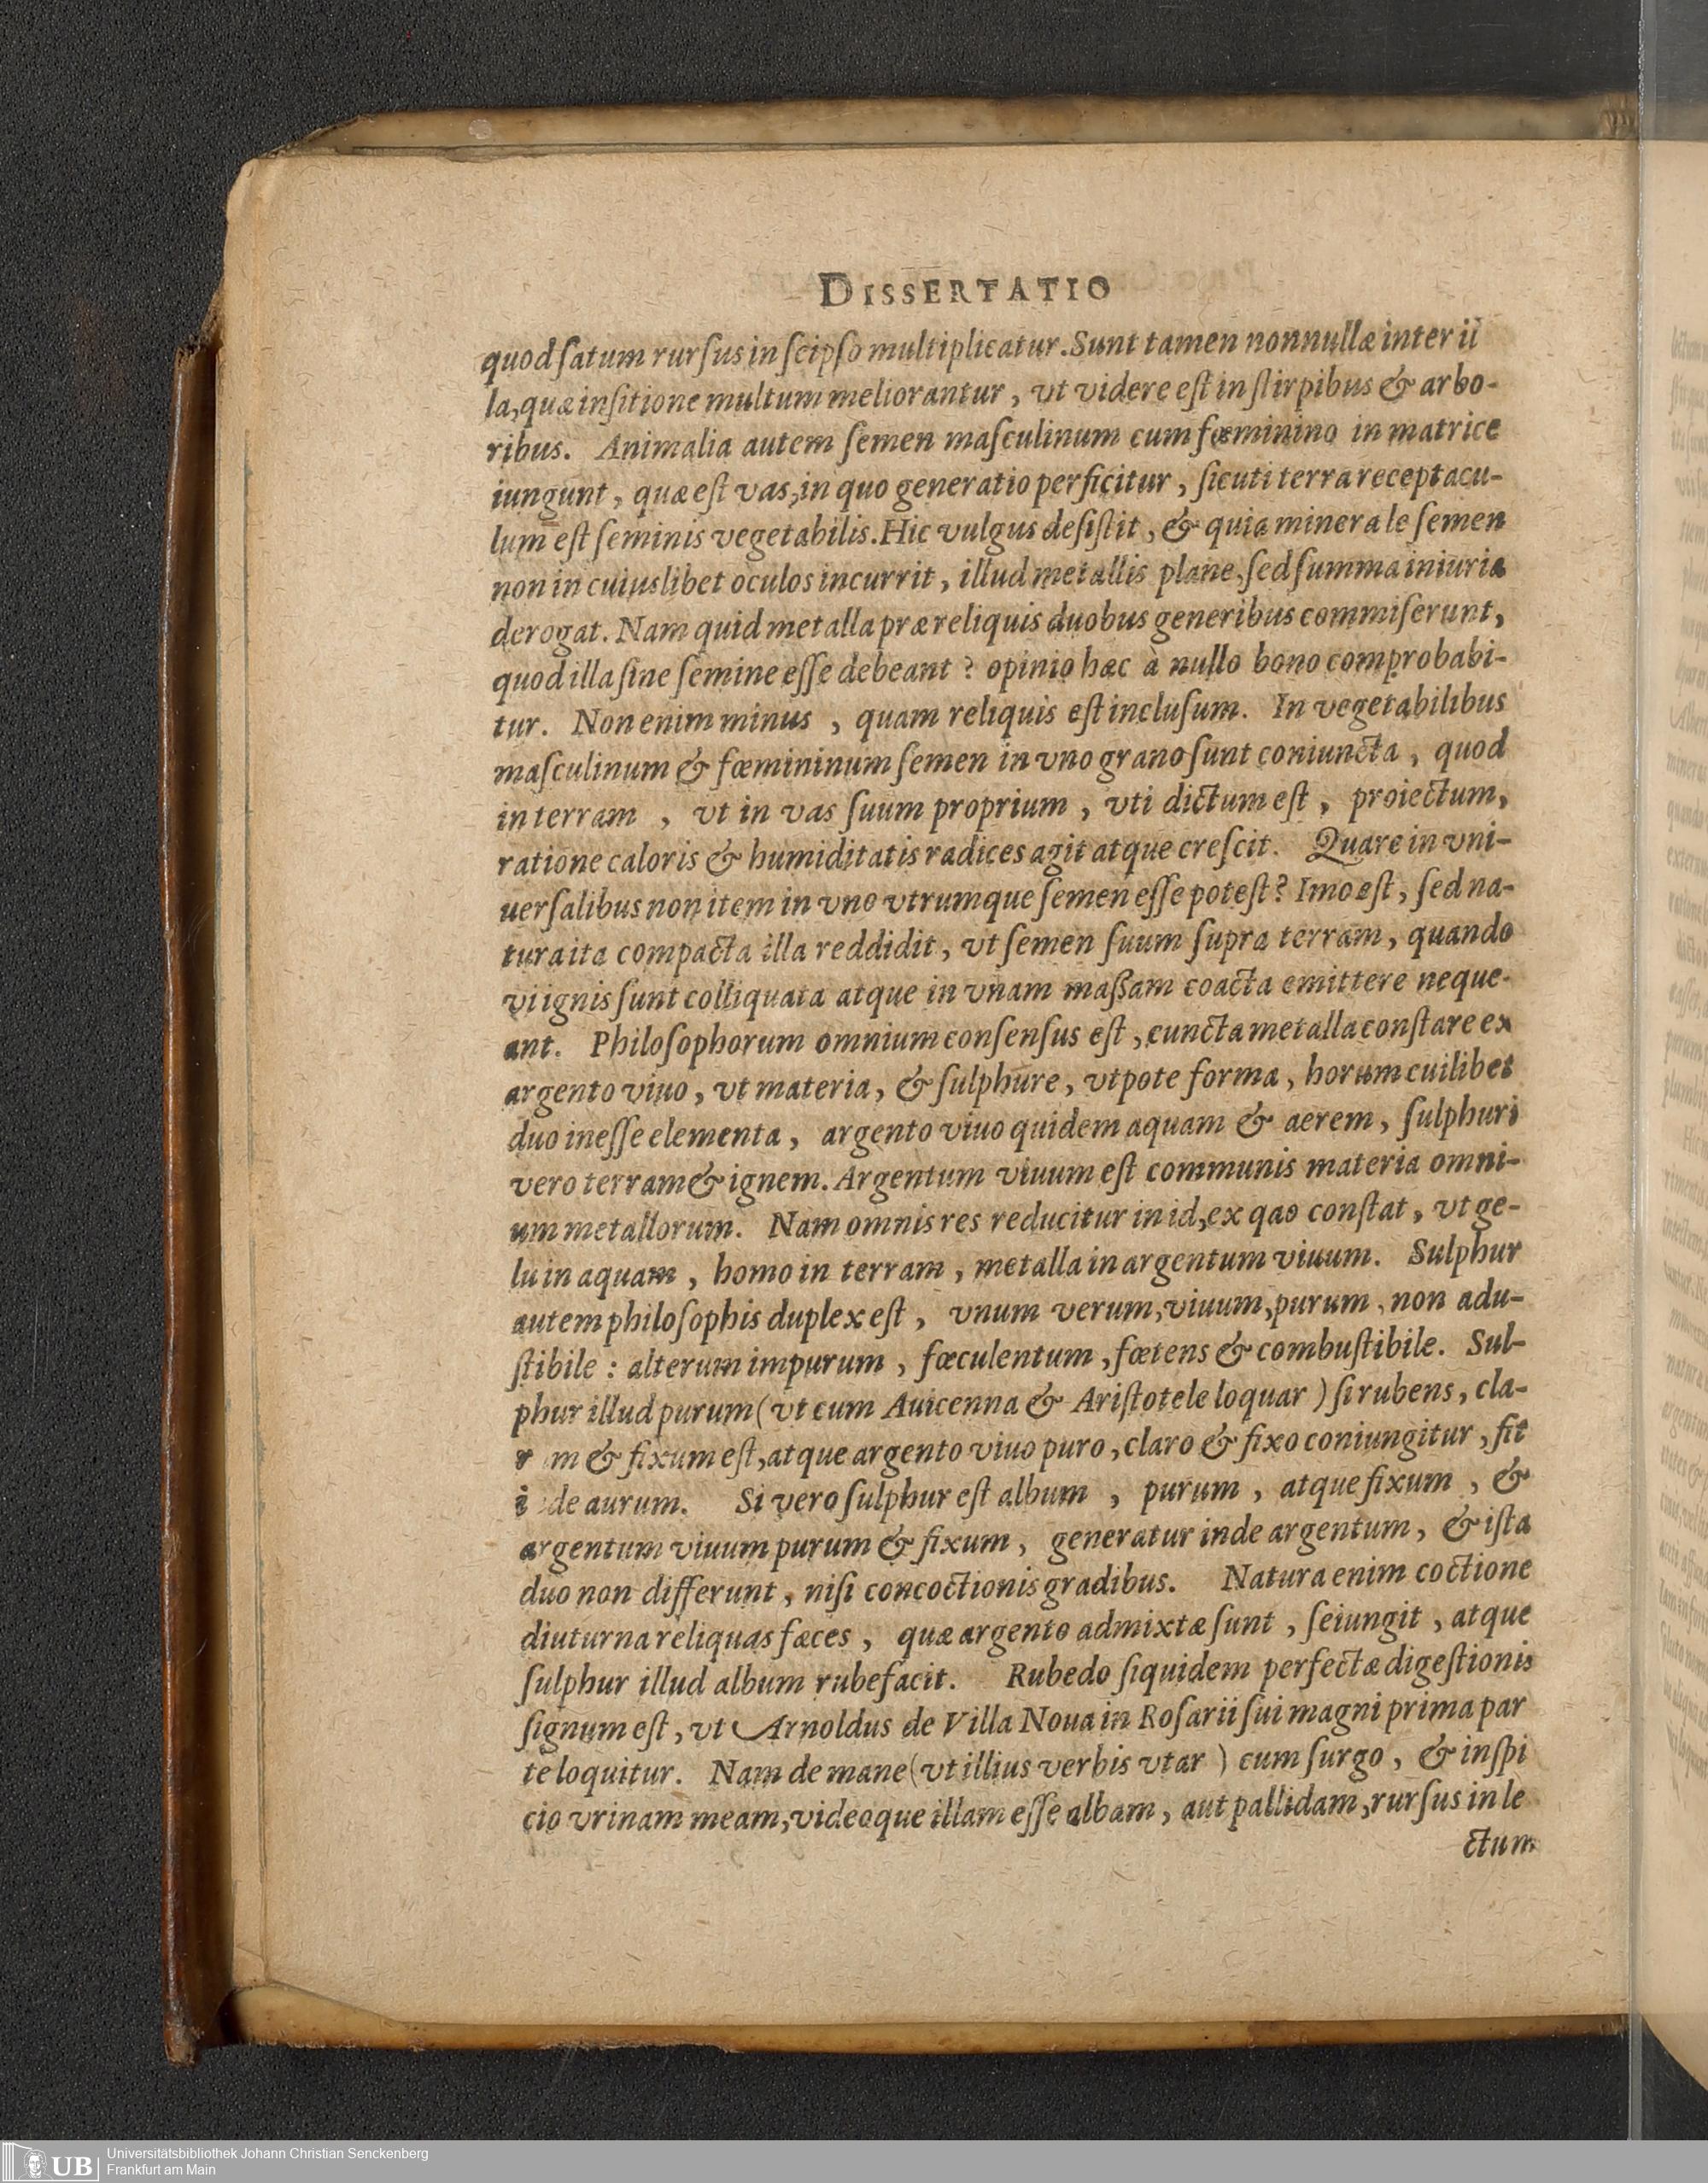 DISSERTATIO
quod ſatum rurſus in ſeipſo multiplicatur. Sunt tamen nonnullæ inter il
la, quæ inſitione multum meliorantur, vt videre eſt in ſtirpibus & arbo-
ribus. Animalia autem ſemen maſculinum cum fœminino in matrice
iungunt, quæ eſt vas, in quo generatio perficitur, ſicuti terra receptacu-
lum eſt ſeminis vegetabilis. Hic vulgus deſiſtit, & quia minerale ſemen
non in cuiuslibet oculos incurrit, illud metallis plane, ſed ſumma iniuria
derogat. Nam quid metalla præ reliquis duobus generibus commiſerunt,
quod illa ſine ſemine eſſe debeant? opinio hæc à nullo bono comprobabi-
tur. Non enim minus, quam reliquis eſt incluſum. In vegetabilibus
maſculinum & fœmininum ſemen in vno grano ſunt coniuncta, quod
in terram, vt in vas ſuum proprium, vti dictum eſt, proiectum,
ratione caloris & humiditatis radices agit atque creſcit. Quare in vni-
uerſalibus non item in vno vtrumque ſemen eſſe poteſt? Imo eſt, ſed na-
tura ita compacta illa reddidit, vt ſemen ſuum ſupra terram, quando
vi ignis ſunt colliquata atque in vnam maſſam coacta emittere neque-
ant. Philoſophorum omnium conſenſus eſt, cuncta metalla conſtare ex
argento viuo, vt materia, & ſulphure, vtpote forma, horum cuilibet
duo ineſſe elementa, argento viuo quidem aquam & aerem, ſulphuri
vero terram & ignem. Argentum viuum eſt communis materia omni-
um metallorum. Nam omnis res reducitur in id, ex qao conſtat, vt ge-
lu in aquam, homo in terram, metalla in argentum viuum. Sulphur
autem philoſophis duplex eſt, vnum verum, viuum, purum, non adu-
ſtibile: alterum impurum, fœculentum, fœtens & combuſtibile. Sul-
phur illud purum (vt cum Auicenna & Ariſtotele loquar) ſi rubens, cla-
r m & fixum eſt, atque argento viuo puro, claro & fixo coniungitur, fit
i de aurum. Si vero ſulphur eſt album, purum, atque fixum, &
argentum viuum purum & fixum, generatur inde argentum, & iſta
duo non differunt, niſi concoctionis gradibus. Natura enim coctione
diuturna reliquas fæces, quæ argento admixtæ ſunt, ſeiungit, atque
ſulphur illud album rubefacit. Rubedo ſiquidem perfectæ digeſtionis
ſignum eſt, vt Arnoldus de Villa Noua in Roſarii ſui magni prima par
te loquitur. Nam de mane (vt illius verbis vtar) cum ſurgo, & inſpi
cio vrinam meam, videoque illam eſſe albam, aut pallidam, rurſus in le
ctum
UB
Universitätsbibliothek Johann Christian Senckenberg
Frankfurt am Main